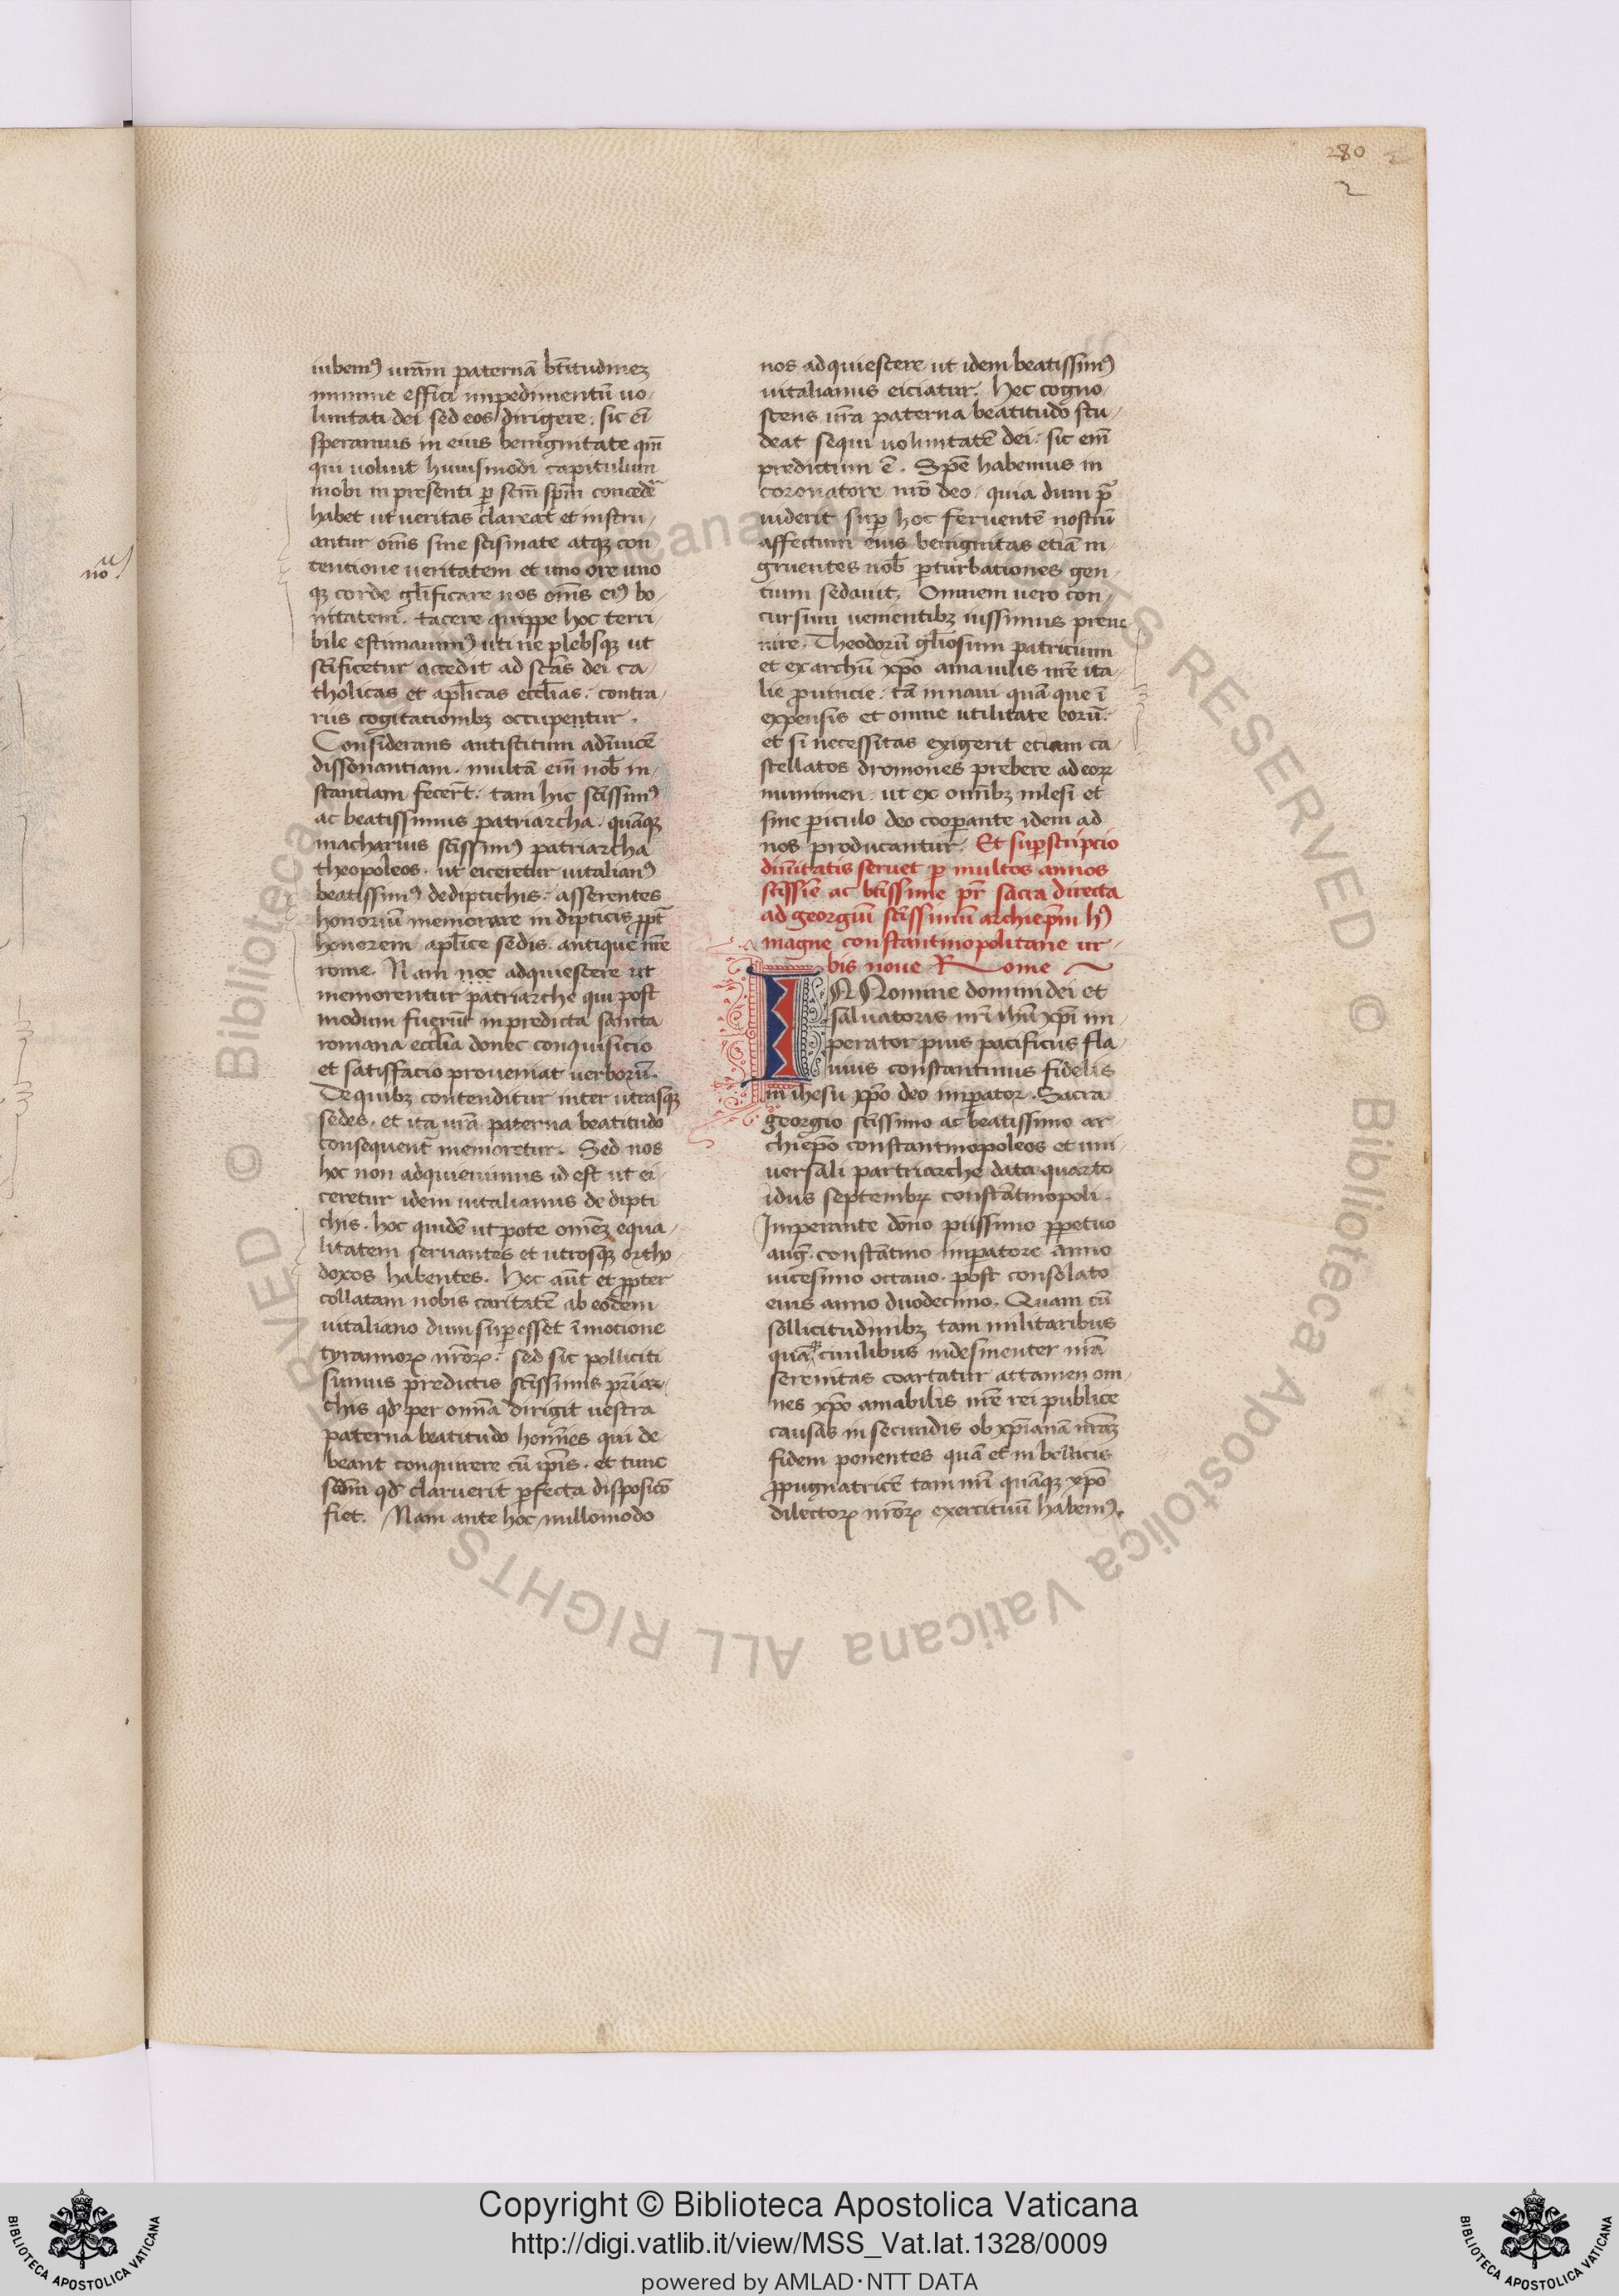 280
2
iubemꝰ uram̄ paternā bt̄itudinez
minime effici impedimentū uo
luntati dei sed eos dirigere. sic ei̅
speramus in eius benignitate qm̅
qui uoluit huiusmodi capitulum
mobi in presenti ꝑ scm̅ spm̅ concede᷑
habet ut ueritas clareat et instru
antur om̅s sine scismate atqꝫ con
tentione ueritatem et uno ore uno
qꝫ corde gl̅ificare nos om̅s eiꝰ bo
nitatem. tacere quippe hoc terri
bile estimauimꝰ uti ne plebsqꝫ ut
scificetur accedit ad sctās dei ca
tholicas et apl̅icas eccl̅ias. contra
riis cogitationibꝫ occupentur.
Considerans antistitum adinuicē
dissonantiam. multā em̅ nob̅ in
stantiam fecer̅t. tam hic sc̅issimꝰ
ac beatissimus patriarcha. quāqꝫ
macharius sc̅issimꝰ patriarcha
theopoleos. ut eiceretur uitalianꝰ
beatissimꝰ de diptichis. asserentes
honoriū memorare in dipticis ꝓpt̅
honorem apl̅ice sedis. antique nr̅e
rome. Nam noc adquiescere ut
memorentur patriarche qui post
modum fuerūt in predicta sancta
romana eccl̅ia donec conquisicio
et satisfacio proueniat uerborū.
De quibꝫ contenditur inter utrasqꝫ
sedes. et ita ur̅a paterna beatitudo
consequent᷑ memoretur. Sed nos
hoc non adquieuimus id est ut ei
ceretur idem uitalianus de dipti
chis. hoc quidē ut pote om̅ez equa
litatem seruantes et utrosqꝫ ortho
doxos habentes. Hec aūt et ꝓpter
collatam nobis caritatē ab eodem
uitaliano dum superesset ī motione
tyrannorꝝ nr̅orꝝ. sed sic polliciti
sumus predictis sc̅issimis pr̅iar
chis qd̅ per omīa dirigit uestra
paterna beatitudo homīes qui de
beant conquirere cū ipīs. et tunc
scdm̅ qd̅ claruerit ꝑfecta disposicō
fiet. Nam ante hoc nullomodo
nos adquiescere ut idem beatissimꝰ
uitalianus eiciatur. Hec cogno
scens ur̅a paterna beatitudo stu
deat sequi uoluntatē dei. sic em̅
predictum ē. Spē habemus in
coronatore nr̅o deo. quia dum p̅
uiderit suꝑ hoc feruentē nostrū
affectum eius benignitas etiā in
gruentes nob̅ ꝑturbationes gen
tium sedauit. Omnem uero con
cursum uenientibꝫ iussimus preue
nire. Theodorū gl̅iosum patricium
et exarchū xp̅o amauilis nr̅e ita
lie prouincie. tā in naui quā que ī
expensis et omne utilitate eorū.
et si necessitas exigerit etiam ca
stellatos dromones prebere ad eorꝝ
munimen. ut ex omībꝫ inlesi et
sine periculo deo cooperante idem ad
nos producantur. Et superscriptio
diuītatis seruet ꝑ multos annos
sc̅issīe ac bt̅issime pr̅ sacra directa
ad georgiū sc̅issimū archiepm̅ hꝰ
magne constantinopolitane ur
bis noue Rome
IN Nomine domini dei et
saluatoris nr̅i ihū xp̅i im
perator pius pacificus fla
uius constantinus fidelis
in ihesu xp̅o deo imperator. Sacra
georgio sc̅issimo ac beatissimo ar
chiepō constantinopoleos et uni
uersali partriarche data quarto
idus septembrꝝ constātinopoli.
Imperante dōno piissimo ꝓpetuo
aug̅. constātino imperatore anno
uicesimo octauo. post consolato
eius anno duodecimo. Quam cū
sollicitudinibꝫ tam militaribus
quāqꝫ ciuilibus indesinenter nr̅a
serenitas coartatur attamen om
nes xp̅o amabilis nr̅e rei publice
causas in secundis ob xp̅ianā nr̅az
fidem ponentes quā et in bellicis
ꝓpugnatricē tam nr̅i quāqꝫ xp̅o
dilectorꝝ nr̅orꝝ exercituū habemꝰ.
Copyright © Biblioteca Apostolica Vaticana
http://digi.vatlib.it/view/MSS_Vat.lat.1328/0009
powered by AMLAD·NTT DATA
BIBLIOTECA APOSTOLICA VATICANA
BIBLIOTECA APOSTOLICA VATICANA
© Biblioteca Apostolica Vaticana ALL RIGHTS RESERVED